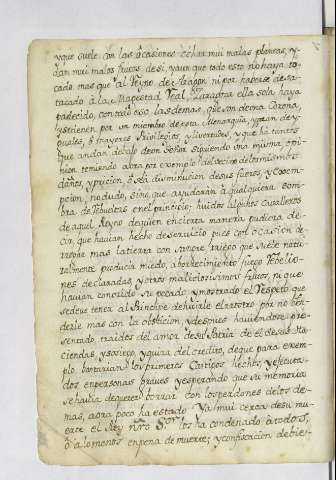 y que suele con las ocasiones echar mui malas plantas, y
dan mui malos frutos de si, y aunque todo esto no haya to-
cado mas que al Reyno de Aragon ni por haberse desa-
tacado á la Magestad Real, Zaragoza ella sola haya
padecido, con todo eso las demas que son de una Corona,
y se tienen por un miembro de esta Monarquia, y gozan de y-
guales, ó mayores Privilegios, y livertades, y que há tantos
que andan delo de on Señor siguiendo una misma opi-
nion, temiendo abra por exemplo del vecino del mismo
daños, y pricion, ó la disminucion de sus fueros, y exem-
pcion, no dudo, sino que ayudarán á qualquiera som-
bra de rebueltas en el principio; huidos algunos Cavalleros
de aquel Reyno de quien en cierta manera pudiera de-
cir, que havian hecho deservicio pues con ocasion de
regar mas la tierra con sangre, riego que suele natu-
ralmente producir miedo, aborrecimiento, fuego, Rebelio-
nes declaradas, y otros maliciosisimos frutos, ni que
havian conocido su pecado, y mostrado el respeto que
se deve tener al Principe de huirle el rostro por no ofen-
derle mas con la obstinacion, y despues haviendose pre-
sentado, traidos del amor de su Patria, el de sus Ha-
ciendas, y sosiego, y quizá del credito, de que para exem-
plo bastarian los primeros Castigos hechos, y executa-
dos en personas graves y esperando que su memoria
se havia de querer borrar con los perdones de los de-
mas, aora poco ha estado ya mui cerca de su mu-
erte el Rey nro. Sor. los ha condenado á todos,
ó á lo menos en pena de muerte; y confiscacion de bie-